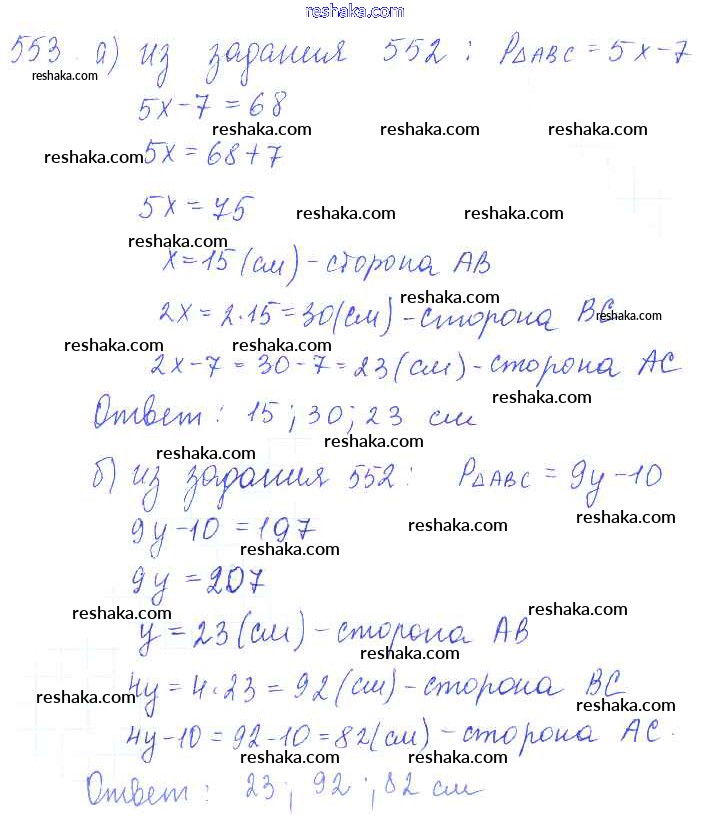 reshaka.com
553 а) из задания 552: P△ABC = 5x-7
reshaka.com
5x-7=68
reshaka.com reshaka.com
reshaka.com 5x=68+7
5x=75 reshaka.com reshaka.com
reshaka.com
x=15(см)-сторона AB
reshaka.com
2x=2·15=30(см)-сторона BC reshaka.com
reshaka.com reshaka.com
2x-7=30-7=23(см)-сторона AC
reshaka.com
Ответ: 15; 30; 23 см
reshaka.com reshaka.com
б) из задания 552: P△ABC = 9y-10
9y-10=197 reshaka.com reshaka.com
reshaka.com
9y=207
reshaka.com reshaka.com
y=23(см)-сторона AB
reshaka.com
4y=4·23=92(см)-сторона BC
reshaka.com reshaka.com
4y-10=92-10=82(см)-сторона AC.
reshaka.com reshaka.com
Ответ: 23; 92; 82 см